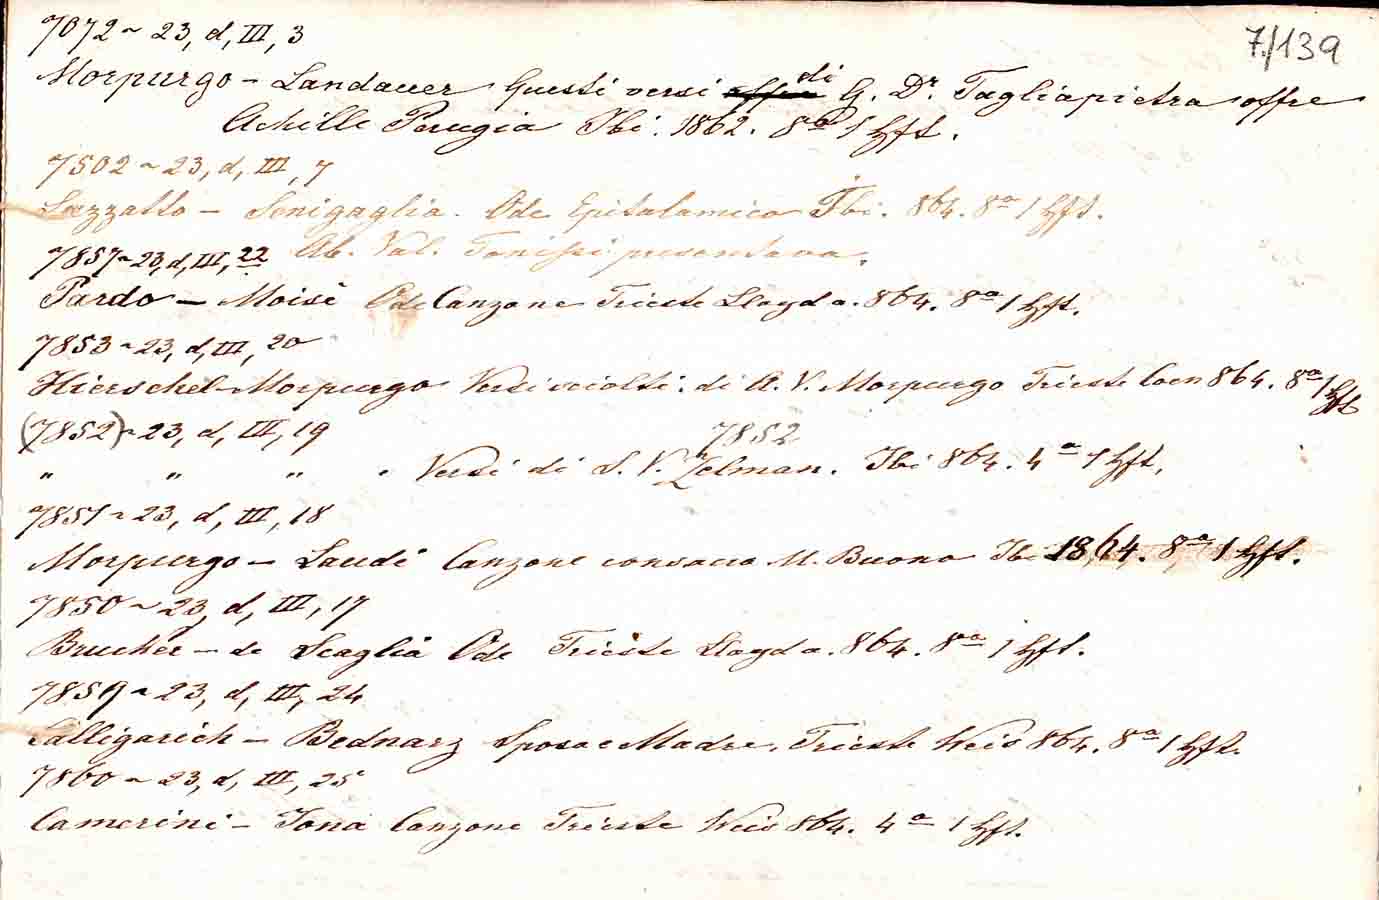 7./139
7072 ~ 23, d, III, 3
Morpurgo – Landauer Questi versi di G. Dr. Tagliapietra offre
Achille Perugia Ibi. 1862. 8a 1 Hft.
7502 ~ 23, d, III, 7
Luzzatto – Senigaglia. Ode Epitalamica Ibi. 864. 8a 1 Hft.
Ab. Val. Tonissi presentava.
7857 ~ 23, d, III, 22
Pardo – Moisè Ode Canzone Trieste Lloyd a. 864. 8a 1 Hft.
7853 ~ 23, d, III, 20
Hierschel-Morpurgo Versi sciolti: di A. V. Morpurgo Trieste Coen 864. 8a 1 Hft
(7852) ~ 23, d, III, 19
7852
" " " " Versi di S. V. Zelman. Ibi 864. 4a 1 Hft.
7851 ~ 23, d, III, 18
Morpurgo – Laudi Canzone consacra M. Buono Ib. 1864. 8a 1 Hft.
7850 ~ 23, d, III, 17
Brucher – de Scaglia Ode Trieste Lloyd a. 864. 8a 1 Hft.
7859 ~ 23, d, III, 24
Calligarich – Bednarz Sposa e Madre. Trieste Weis 864. 8a 1 Hft.
7860 ~ 23, d, III, 25
Camerini – Jona Canzone Trieste Weis 864. 4a 1 Hft.